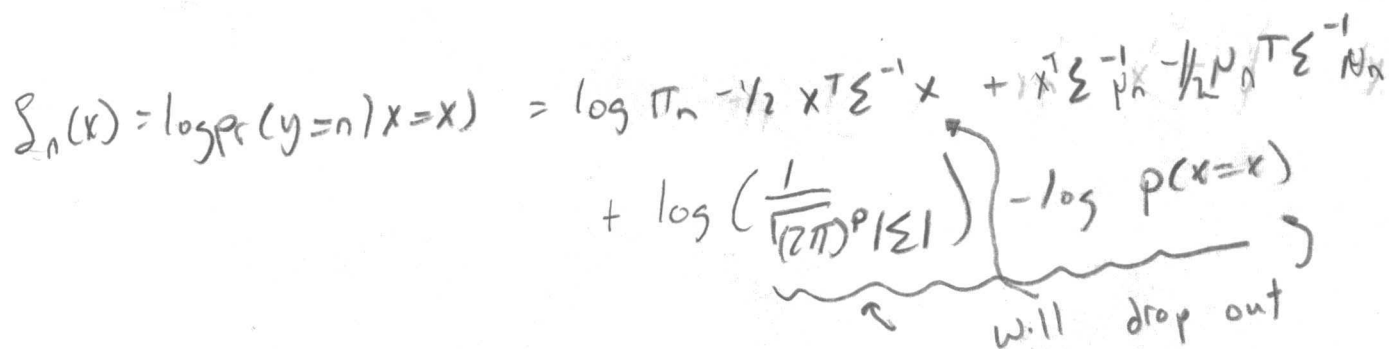 δₙ(x) = log pr(y=n|X=x) = log πₙ -1/2 xᵀΣ⁻¹x + xᵀΣ⁻¹μₙ -1/2 μₙᵀΣ⁻¹μₙ
+ log (1/√(2π)ᵖ|Σ|) - log p(x=x)
will drop out